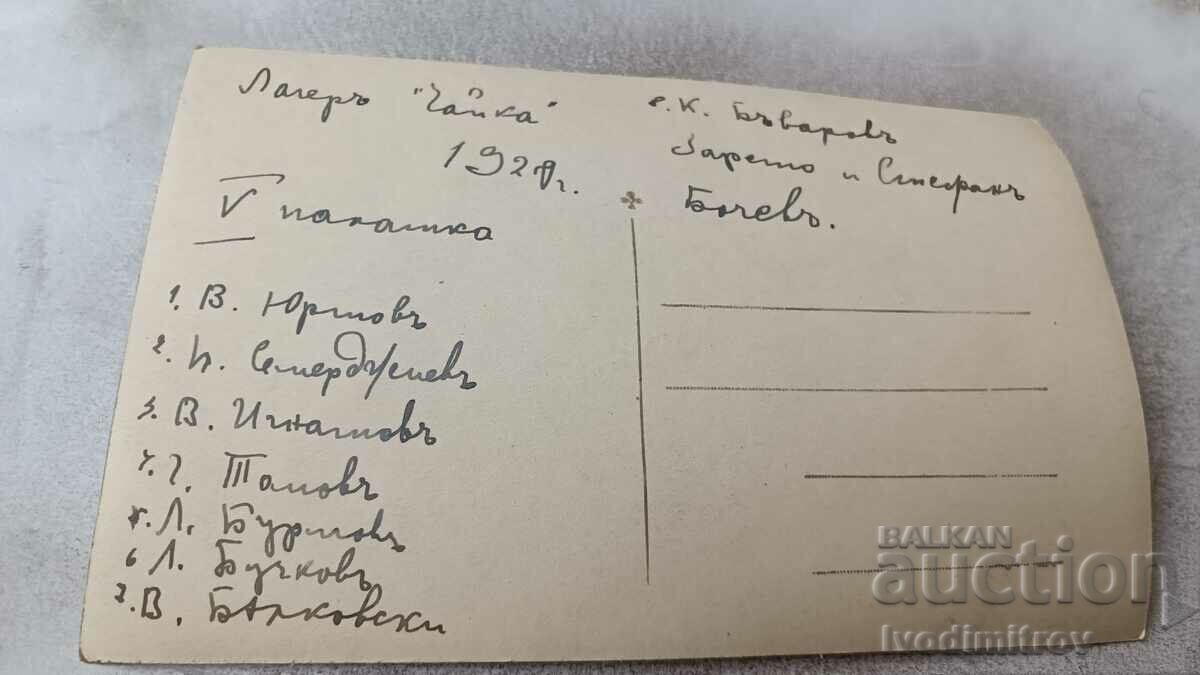 Лагеръ "Чайка"
192 г.
V палатка
1. В. Юруповъ
2. Смерджиевъ
3. В. Игнатовъ
4. Г. Татовъ
5. Л. Бурмовъ
6 Л. Бучковъ
7. В. Бялковски
8. К. Бъваровъ
и Стефанъ
Бочевъ.
BALKAN
auction
Ivodimitrov